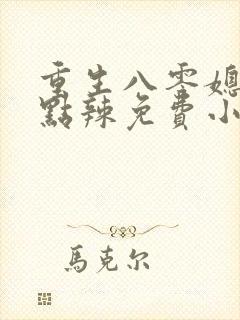 重生八零媳
點辣免費小
馬克尔